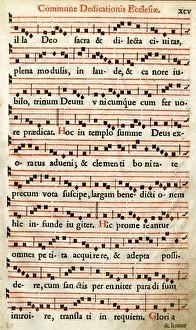 Commune Dedicationis Ecclesiæ. XCV
illa Deo sacra & dilecta ciuitas,
plena modulis, in laude, & canore iu-
bilo, trinum Deum vnicumque cum feruo-
re prædicat. Hoc in templo summe Deus ex-
oratus adueni; & clementi bonitate
precum vota suscipe, largam benedictionem
hic infunde iugiter. Hic promereantur
omnes petita acquirere, & adepta possi-
dere, cum sanctis perenniter paradisum
introire, translati in requiem. Gloria
& honor